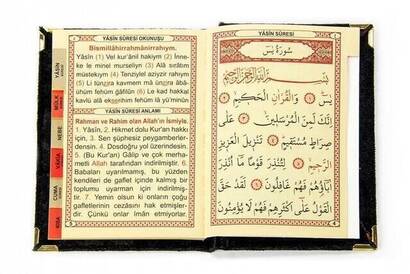 YÂSÎN SÛRESİ OKUNUŞU
Bismillâhirrahmânirrahıym.
Yâsîn (1) Vel kur'ânil hakiym (2) İnne-
ke le minel murseliyn (3) Alâ sırâtım
müstekıym (4) Tenziylel aziyzir rahıym
(5) Li tünzira kavmen mâ ünzira âbâü-
hüm fehüm ğâfilûn (6) Le kad hakkal
kavlü alâ ekserihim fehüm lâ yü'minûn
YÂSÎN SÛRESİ ANLAMI
Rahman ve Rahim olan Allah'ın İsmiyle.
1. Yâsîn, 2. Hikmet dolu Kur'an hakkı
için, 3. Sen şüphesiz peygamberler-
densin. 4. Dosdoğru yol üzerindesin.
5. (Bu Kur'an) Gâlip ve çok merha-
metli Allah tarafından indirilmiştir. 6.
Babaları uyarılmamış, bu yüzden
kendileri de gaflet içinde kalmış bir
toplumu uyarman için indirilmiş-
tir. 7. Yemin olsun ki onların çoğu
gafletlerinin cezasını hak etmişler-
dir. Çünkü onlar îmân etmiyorlar.
YÂSÎN
MÜLK
NEBE
VAKIA
CUMA
KISA
YÂSÎN SÛRESİ
سُورَةُ يٰسٓ
بِسْمِ اللّٰهِ الرَّحْمٰنِ الرَّحِيمِ
يٰسٓ ﴿١﴾ وَالْقُرْاٰنِ الْحَكِيمِ ﴿٢﴾
اِنَّكَ لَمِنَ الْمُرْسَلِينَ ﴿٣﴾ عَلٰى
صِرَاطٍ مُسْتَقِيمٍ ﴿٤﴾ تَنْزِيلَ الْعَزِيزِ
الرَّحِيمِ ﴿٥﴾ لِتُنْذِرَ قَوْمًا مَٓا اُنْذِرَ
اٰبَٓاؤُهُمْ فَهُمْ غَافِلُونَ ﴿٦﴾ لَقَدْ حَقَّ
الْقَوْلُ عَلٰٓى اَكْثَرِهِمْ فَهُمْ لَا يُؤْمِنُونَ
4